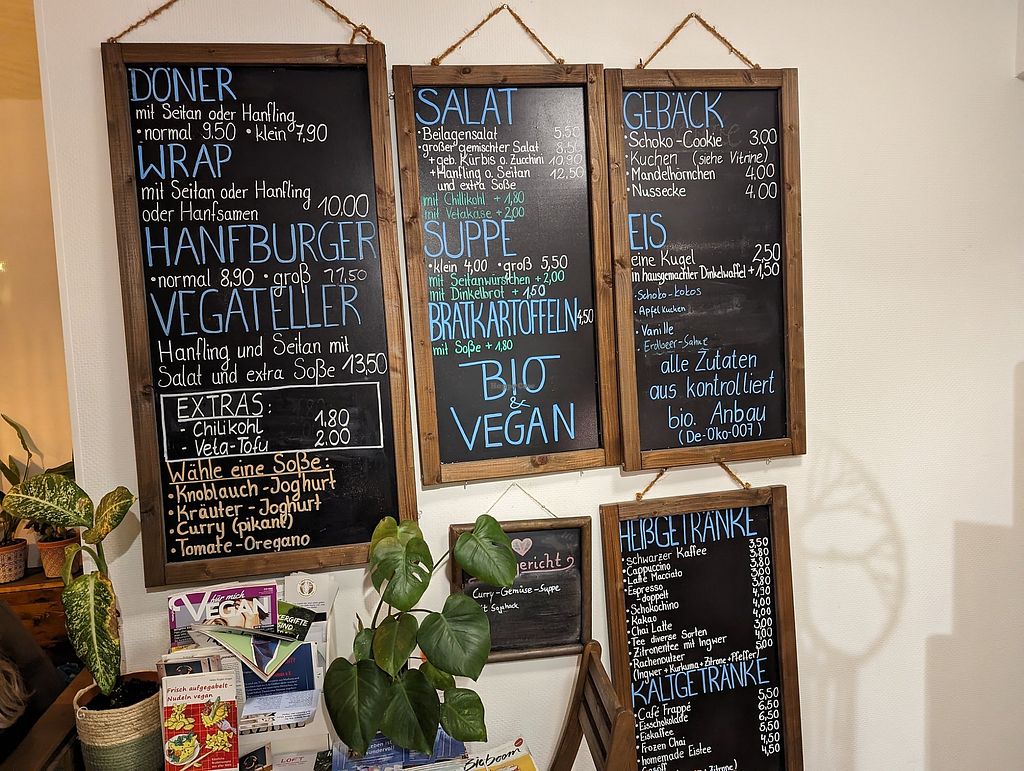 DÖNER
mit Seitan oder Hanfling
• normal 9.50 • klein 7,90
WRAP
mit Seitan oder Hanfling
oder Hanfsamen 10.00
HANFBURGER
• normal 8,90 • groß 11,50
VEGATELLER
Hanfling und Seitan mit
Salat und extra Soße 13,50
EXTRAS:
- Chilikohl 1,80
- Veta-Tofu 2,00
Wähle eine Soße:
• Knoblauch-Joghurt
• Kräuter-Joghurt
• Curry (pikant)
• Tomate-Oregano
SALAT
• Beilagensalat 5,50
• großer gemischter Salat 8,50
+ geb. Kürbis o. Zucchini 10,90
+ Hanfling o. Seitan 12,50
und extra Soße
mit Chillikohl + 1,80
mit Vetakäse + 2,00
SUPPE
• klein 4,00 • groß 5,50
mit Seitanwürstchen + 2,00
mit Dinkelbrot + 1,50
BRATKARTOFFELN 4,50
mit Soße + 1,80
BIO
&
VEGAN
GEBÄCK
• Schoko-Cookie 3.00
• Kuchen (siehe Vitrine)
• Mandelhörnchen 4.00
• Nussecke 4.00
EIS
eine Kugel 2,50
in hausgemachter Dinkelwaffel + 1,50
• Schoko-kokos
• Apfelkuchen
• Vanille
• Erdbeer-Sahne
alle Zutaten
aus kontrolliert
bio. Anbau
(De-Öko-007)
gericht
Curry-Gemüse-Suppe
mit Sojahack
HEIßGETRÄNKE
• Schwarzer Kaffee 3,50
• Cappuccino 3,80
• Latte Macciato
• Espresso
- doppelt
• Schokochino
• Kakao
• Chai Latte
• Tee diverse Sorten
• Zitronentee mit Ingwer
• Rachenputzer 5,00
(Ingwer + Kurkuma + Zitrone + Pfeffer)
KALTGETRÄNKE
• Café Frappé 5,50
• Eisschokolade 6,50
• Eiskaffee 6,50
• Frozen Chai 5,50
• homemade Eistee 4,50
für mich
VEGAN
ENERGIFTE
Frisch aufgegabelt -
Nudeln vegan
LOFT